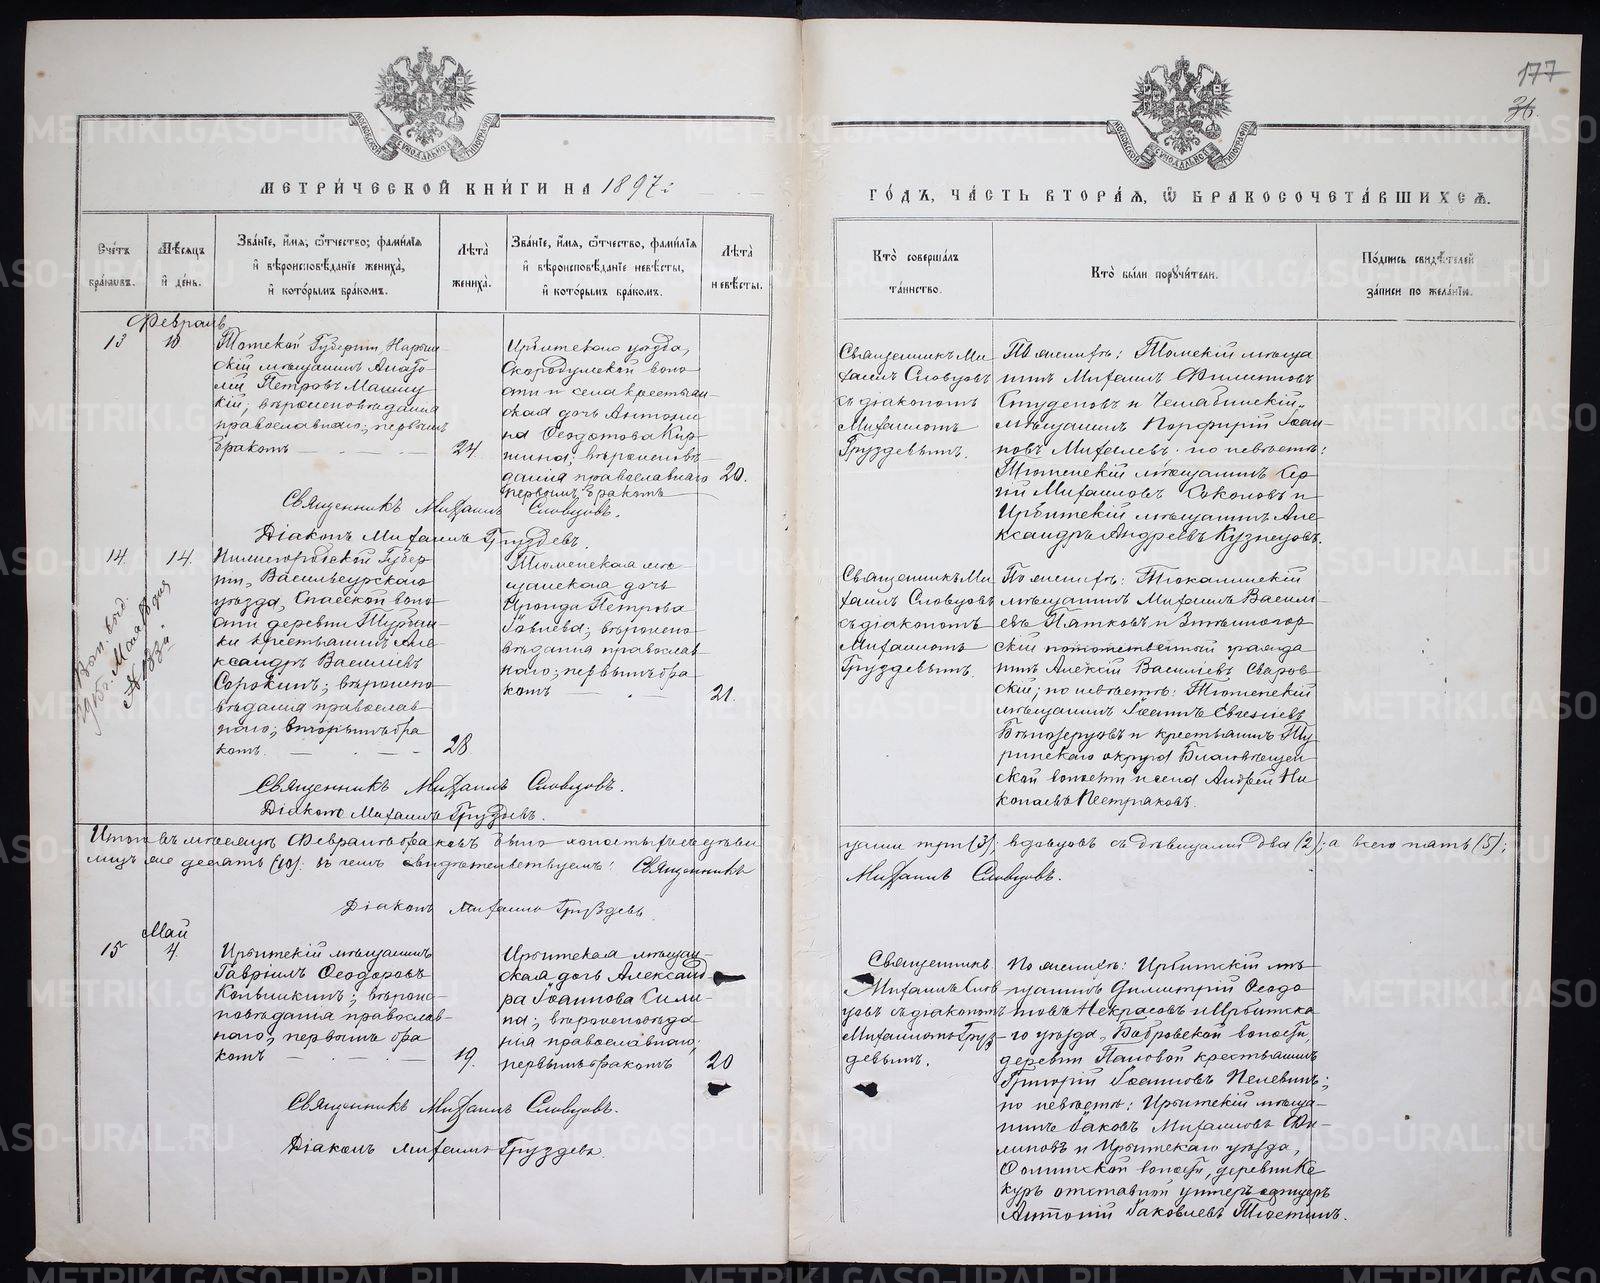 177
36
МЕТРИ́ЧЕСКОЙ КНИ́ГИ НА 1897
ГО́ДЪ, ЧА́СТЬ ВТОРА́Ѧ, Ѿ БРАКОСОЧЕТА́ВШИХСѦ.
Сче́тъ бра́ковъ.
Мѣ́сяцъ и҆ де́нь.
Зва́нїе, и҆́мя, ѻ҆́тчество, фами́лїя и҆ вѣроисповѣ́данїе жениха̀, и҆ кото́рымъ бра́комъ.
Лѣта̀ жениха̀.
Зва́нїе, и҆́мя, ѻ҆́тчество, фами́лїя и҆ вѣроисповѣ́данїе невѣ́сты, и҆ кото́рымъ бра́комъ.
Лѣта̀ невѣ́сты.
Кто̀ соверша́лъ та́инство.
Кто̀ бы́ли порꙋчи́тели.
По́дпись свидѣ́телей за́писи по жела́нїю.
Февраль
13
10
Томской Губерніи, Нарым-
скій мѣщанинъ Анато-
лій Петровъ
вѣроисповѣданія
православнаго; первымъ
бракомъ
24
Ирбитскаго уѣзда,
Скородумской воло-
сти и села крестьян-
ская дочь Антони-
на Ѳеодотова
вѣроисповѣ-
данія православнаго
первымъ бракомъ
20.
Священникъ Ми-
хаилъ Словцовъ
съ діакономъ
Михаиломъ
Груздевымъ.
По женихѣ: Томскій мѣща-
нинъ Михаилъ Филипповъ
Студеновъ и Челябинскій
мѣщанинъ Порфирій Іоан-
новъ Михалевъ. по невѣстѣ:
Тюменскій мѣщанинъ Сер-
гій Михаиловъ Соколовъ и
Ирбитскій мѣщанинъ Але-
ксандръ Андреевъ Кузнецовъ.
Священникъ Михаилъ Словцовъ.
Діаконъ Михаилъ Груздевъ.
14.
14.
Нижегородской Губер-
ніи, Васильсурскаго
уѣзда, Спасской воло-
сти деревни
крестьянинъ Але-
ксандръ Василіевъ
Сорокинъ; вѣроиспо-
вѣданія православ-
наго; вторымъ бра-
комъ.
28
Тюменская мѣ-
щанская дочь
Ираида Петрова
вѣроиспо-
вѣданія православ-
наго; первымъ бра-
комъ
21.
Священникъ Ми-
хаилъ Словцовъ
съ діакономъ
Михаиломъ
Груздевымъ.
По женихѣ: Тюкалинскій
мѣщанинъ Михаилъ Василі-
евъ Пятковъ и Змѣиногор-
скій потомственный гражда-
нинъ Алексій Василіевъ Сваров-
скій; по невѣстѣ: Тюменскій
мѣщанинъ Іоаннъ Евгеніевъ
Бѣлозеровъ и крестьянинъ Ту-
ринскаго округа Благовѣщен-
ской волости и села Андрей Ни-
колаевъ Пестряковъ.
Священникъ Михаилъ Словцовъ.
Діаконъ Михаилъ Груздевъ.
Итого въ мѣсяцѣ Февралѣ браковъ было холостыхъ съ дѣви-
цами три (3), вдовцовъ съ дѣвицами два (2); а всего пять (5);
лицъ же десять (10). въ чемъ свидѣтельствуемъ: Священникъ
Михаилъ Словцовъ.
Діаконъ Михаилъ Груздевъ.
Май
15
4.
Ирбитскій мѣщанинъ
Гавріилъ Ѳеодоровъ
вѣроис-
повѣданія православ-
наго, первымъ бра-
комъ
19.
Ирбитская мѣщан-
ская дочь Александ-
ра Іоаннова Сили-
на; вѣроисповѣда-
нія православнаго;
первымъ бракомъ
20
Священникъ
Михаилъ Слов-
цовъ съ діакономъ
Михаиломъ Груз-
девымъ.
По женихѣ: Ирбитскій мѣ-
щанинъ Димитрій Ѳеодо-
товъ Некрасовъ и Ирбитска-
го уѣзда, Бобровской волости,
деревни крестьянинъ
Григорій Іоанновъ Пелевинъ;
по невѣстѣ: Ирбитскій мѣща-
нинъ Іаковъ Михаиловъ Фи-
линовъ и Ирбитскаго уѣзда,
волости, деревни Ке-
куръ отставной унтеръ-офицеръ
Антоній Іаковлевъ
Священникъ Михаилъ Словцовъ.
Діаконъ Михаилъ Груздевъ.
METRIKI.GASO-URAL.RU